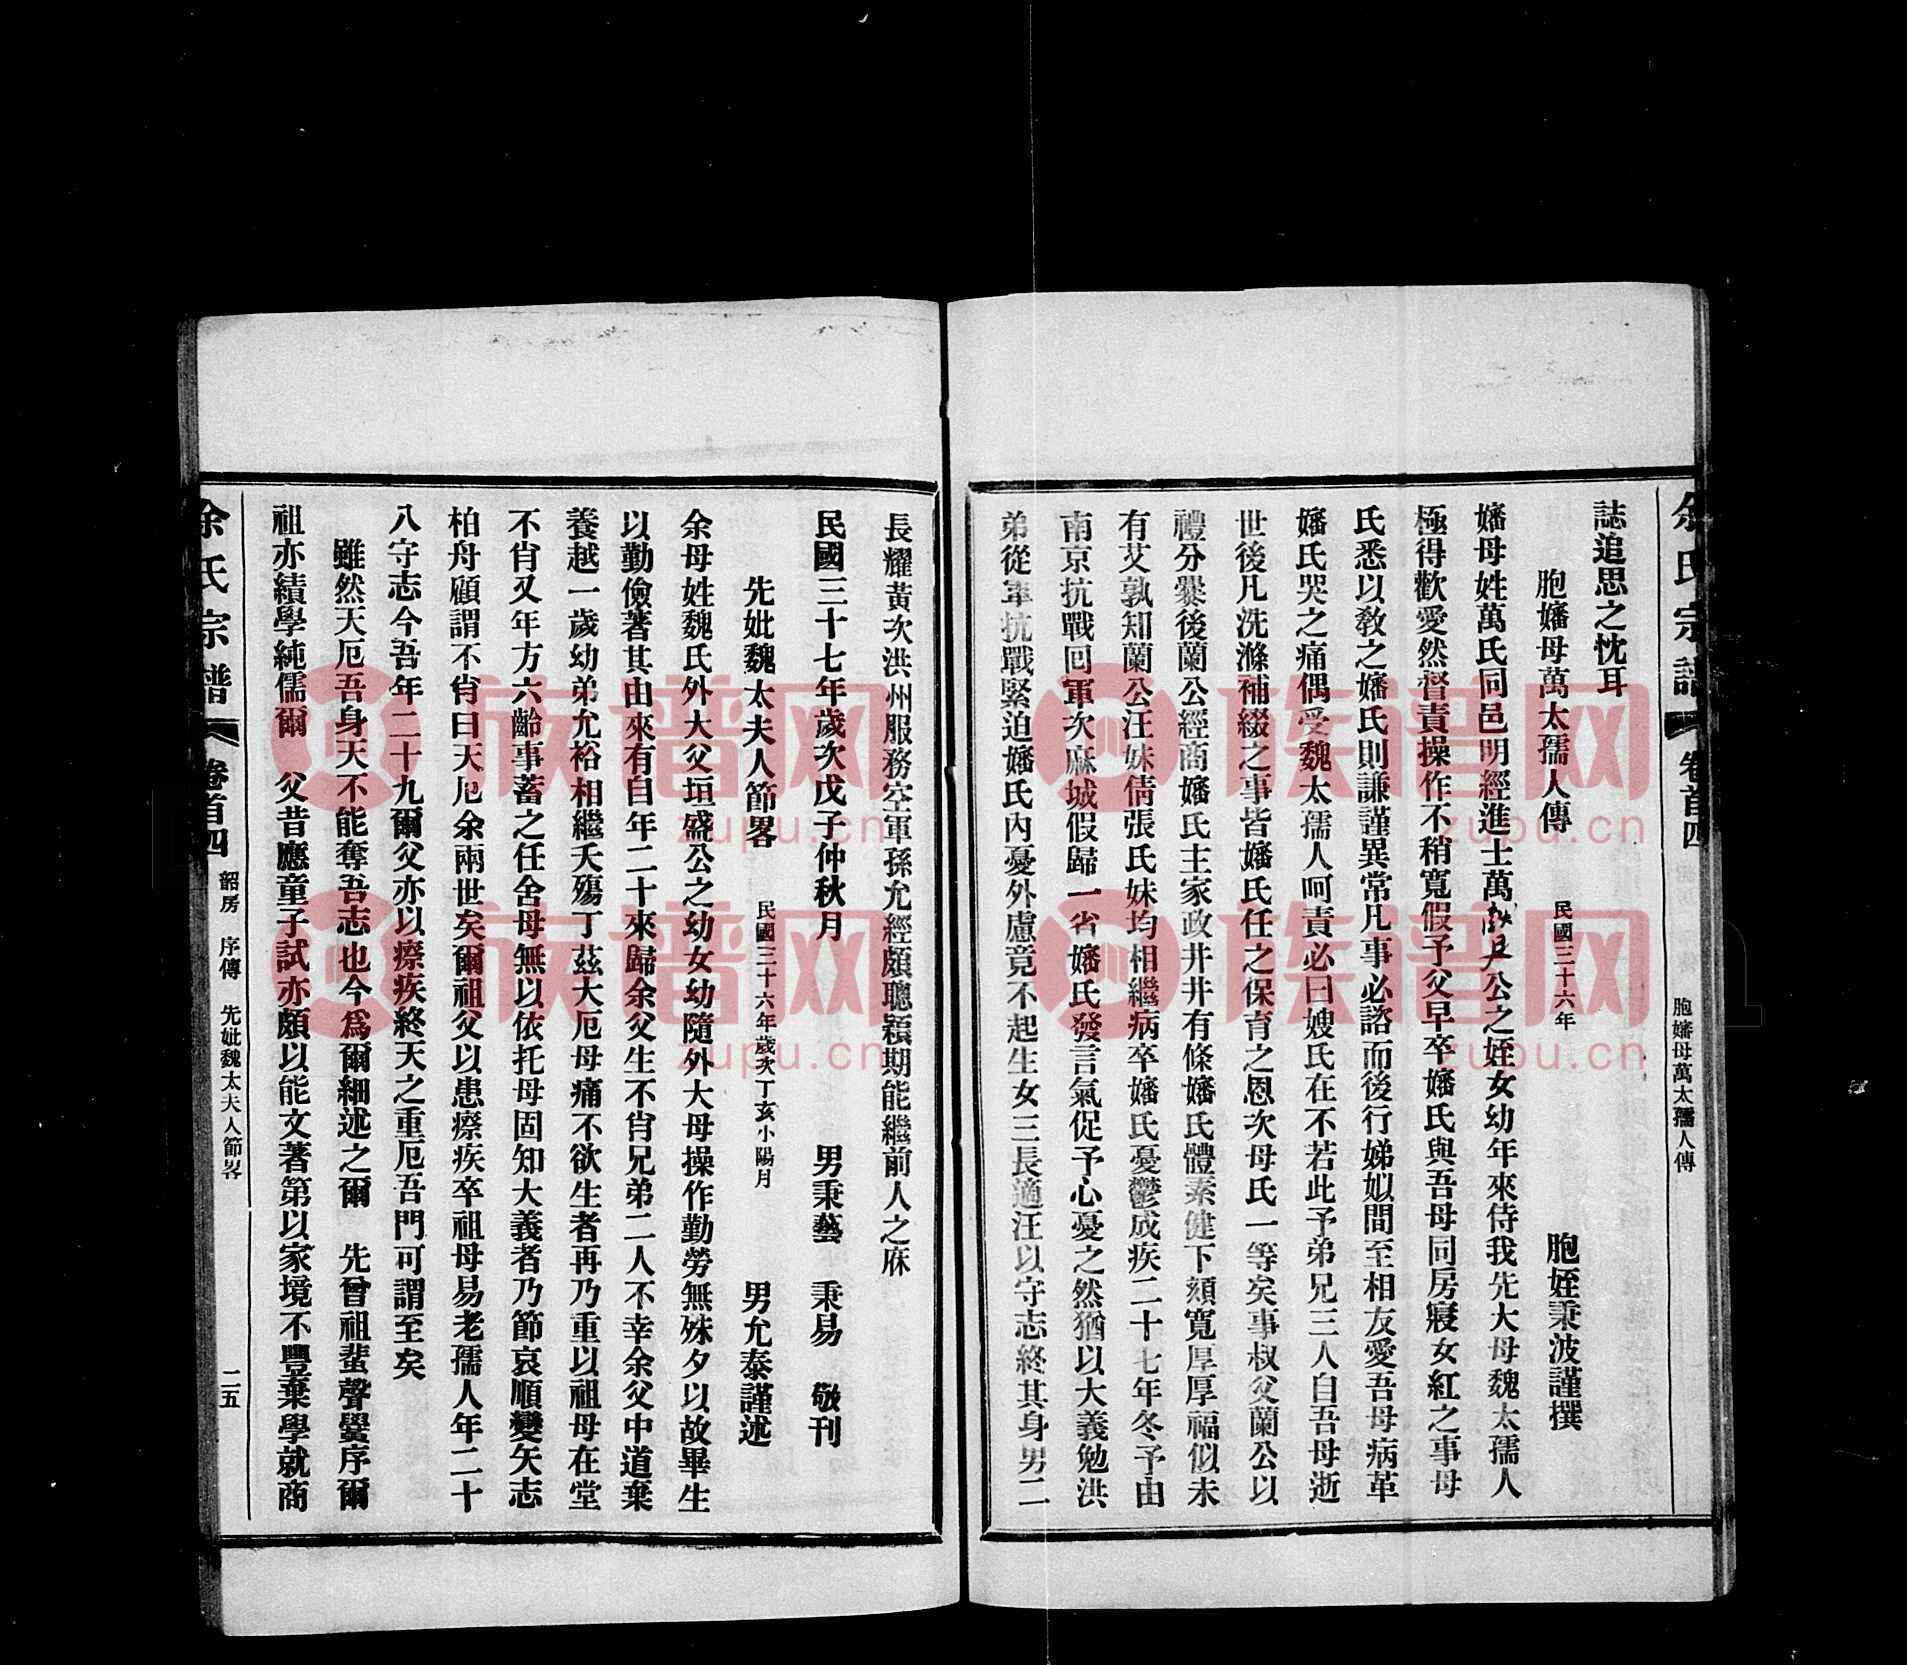 余氏宗譜 卷首四 胞嬸母萬太孺人傳
誌追思之忱耳
胞嬸母萬太孺人傳 民國三十六年 胞姪秉波謹撰
嬸母姓萬氏同邑明經進士萬公之姪女幼年來侍我先大母魏太孺人
極得歡愛然督責操作不稍寬假予父早卒嬸氏與吾母同房寢女紅之事母
氏悉以教之嬸氏則謙謹異常凡事必諮而後行娣姒間至相友愛吾母病革
嬸氏哭之痛偶受魏太孺人呵責必曰嫂氏在不若此予弟兄三人自吾母逝
世後凡洗滌補綴之事皆嬸氏任之保育之恩次母氏一等矣事叔父蘭公以
禮分爨後蘭公經商嬸氏主家政井井有條嬸氏體素健下頦寬厚厚福似未
有艾孰知蘭公汪妹倩張氏妹均相繼病卒嬸氏憂鬱成疾二十七年冬予由
南京抗戰回軍次麻城假歸一省嬸氏發言氣促予心憂之然猶以大義勉洪
弟從軍抗戰緊迫嬸氏內憂外慮竟不起生女三長適汪以守志終其身男二
長耀黃次洪州服務空軍孫允經頗聰穎期能繼前人之庥
民國三十七年歲次戊子仲秋月 男秉藝 秉易 敬刊
先妣魏太夫人節畧 民國三十六年歲次丁亥小陽月 男允泰謹述
余母姓魏氏外大父垣盛公之幼女幼隨外大母操作勤勞無殊夕以故畢生
以勤儉著其由來有自年二十來歸余父生不肖兄弟二人不幸余父中道棄
養越一歲幼弟允裕相繼夭殤丁茲大厄母痛不欲生者再乃重以祖母在堂
不肖又年方六齡事蓄之任舍母無以依托母固知大義者乃節哀順變矢志
柏舟顧謂不肖曰天厄余兩世矣爾祖父以患瘵疾卒祖母易老孺人年二十
八守志今吾年二十九爾父亦以瘵疾終天之重厄吾門可謂至矣
雖然天厄吾身天不能奪吾志也今爲爾細述之爾 先曾祖蜚聲黌序爾
祖亦績學純儒爾 父昔應童子試亦頗以能文著第以家境不豐棄學就商
余氏宗譜 卷首四 韶房 序傳 先妣魏太夫人節畧 二五
族谱网
zupu.cn
族谱网
zupu.cn
族谱网
zupu.cn
族谱网
zupu.cn